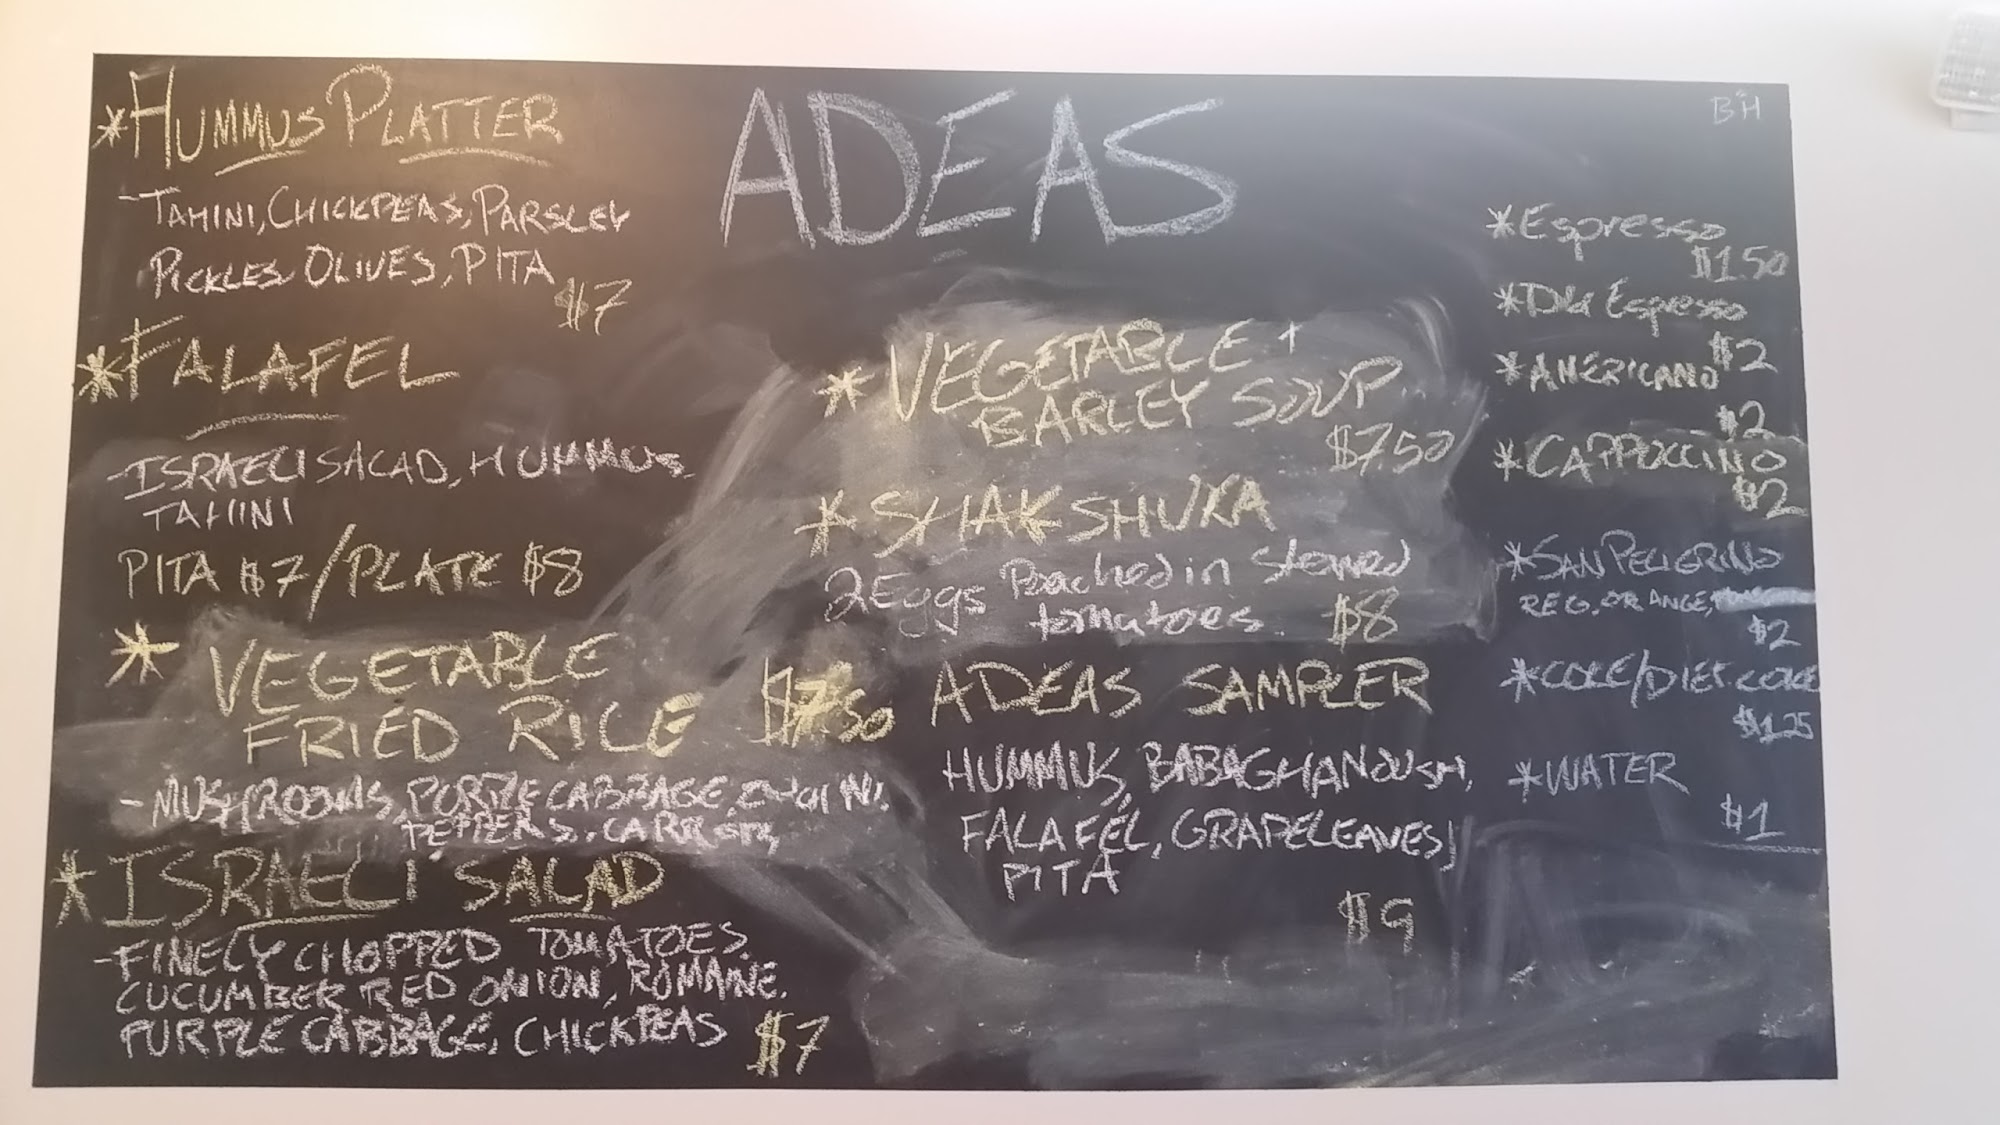 ADEAS
B"H
*HUMMUS PLATTER
-TAHINI, CHICKPEAS, PARSLEY
PICKLES OLIVES, PITA
$7
*FALAFEL
-ISRAELI SALAD, HUMMUS,
TAHINI
PITA $7/PLATE $8
*VEGETABLE
FRIED RICE $7.50
-MUSHROOMS, PURPLE CABBAGE,
PEPPERS, CARROTS,
*ISRAELI SALAD
-FINELY CHOPPED TOMATOES,
CUCUMBER, RED ONION, ROMAINE,
PURPLE CABBAGE, CHICKPEAS $7
*VEGETABLE +
BARLEY SOUP.
$7.50
*SHAKSHUKA
2 Eggs Poached in stewed
tomatoes. $8
ADEAS SAMPLER
HUMMUS, BABAGHANOUSH,
FALAFEL, GRAPELEAVES,
PITA
$9
*Espresso
$1.50
*Dbl Espresso
$2
*AMERICANO
$2
*CAPPUCCINO
$2
*SAN PELIGRINO
REG, ORANGE,
$2
*COKE/DIET COKE
$1.25
*WATER
$1